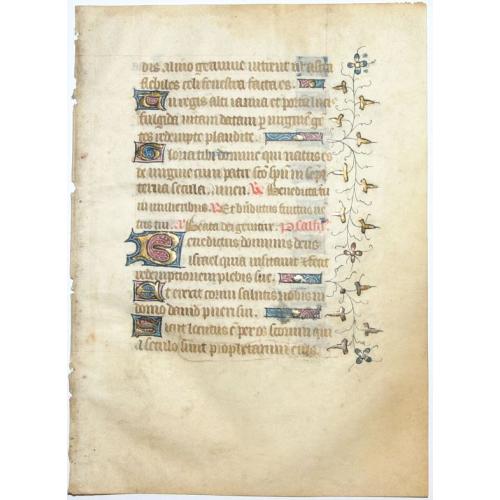 dis almo gremine intrent ut astra
flebiles celi fenestra facta es.
Tu regis alti ianua et porta lucis
fulgida vitam datam p virgine ge
tes redempte plaudite.
Gloria tibi domine qui natus es
de virgine cum patre sco spu in sempi
terna secula. amen. Benedicta tu
in mulieribus. Et bndictus fructus ue
tris tui. Beata dei genitrix. Psalm
Benedictus dominus deus
israel quia visitauit et fecit
redemptionem plebis sue.
Et erexit cornu salutis nobis in
domo dauid pueri sui.
Sicut locutus e per os sctorum qui
a seculo sunt prophetarum eius.